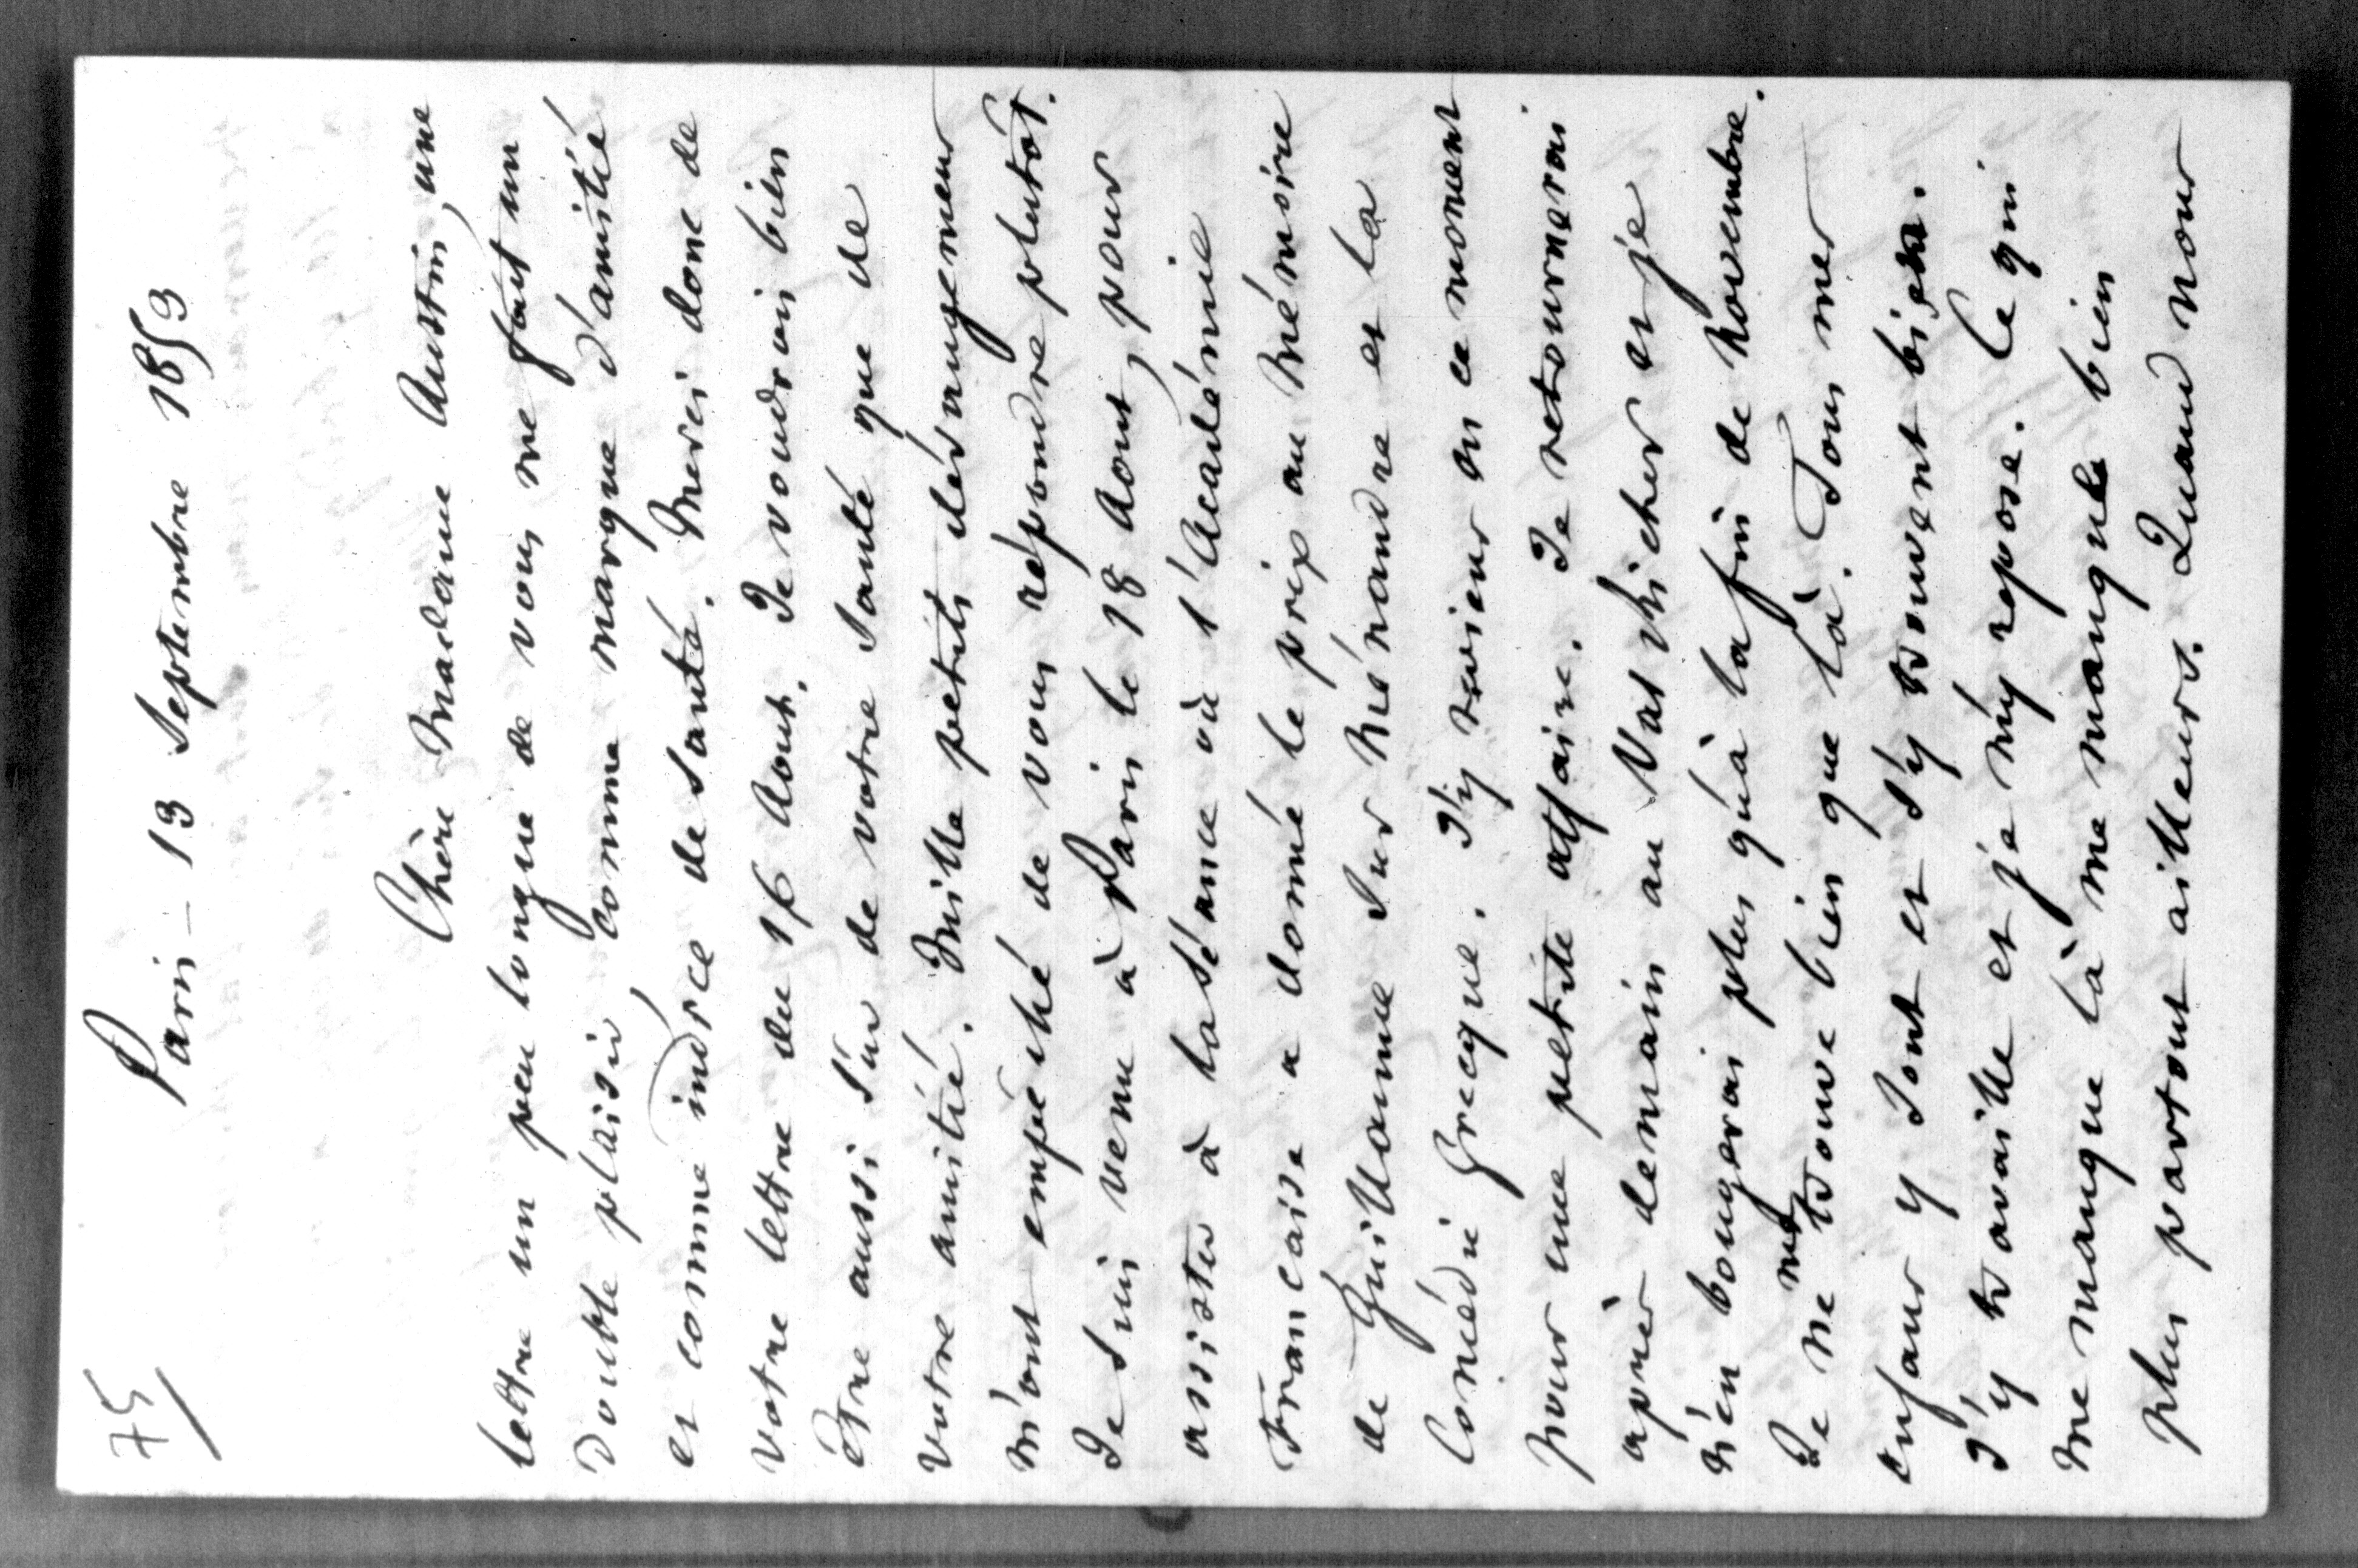 75
Paris - 13 Septembre 1853
Chère Madame Austin, une
lettre un peu longue de vous me fait un
double plaisir, comme marque d'amitié
et comme indice de santé. Merci donc de
votre lettre du 16 Aout. Je voudrois bien
être aussi sûr de votre santé que de
votre amitié. Mille petits dérangemens
m'ont empêché de vous répondre plutôt.
Je suis venu à Paris le 18 Aout, pour
assister à la séance où l'Académie
Française a donné le prix au Mémoire
de Guillaume sur Ménandre et la
Comédie Grecque. J'y reviens en ce moment
pour une petite affaire. Je retournerai
après demain au Val Richer et je
n'en bougerai plus qu'à la fin de Novembre.
Je ne me trouve bien que là. Tous mes
enfans y sont et s'y trouvent bien.
J'y travaille et je m'y repose. Ce qui
me manque là me manque bien
plus partout ailleurs. Quand nous